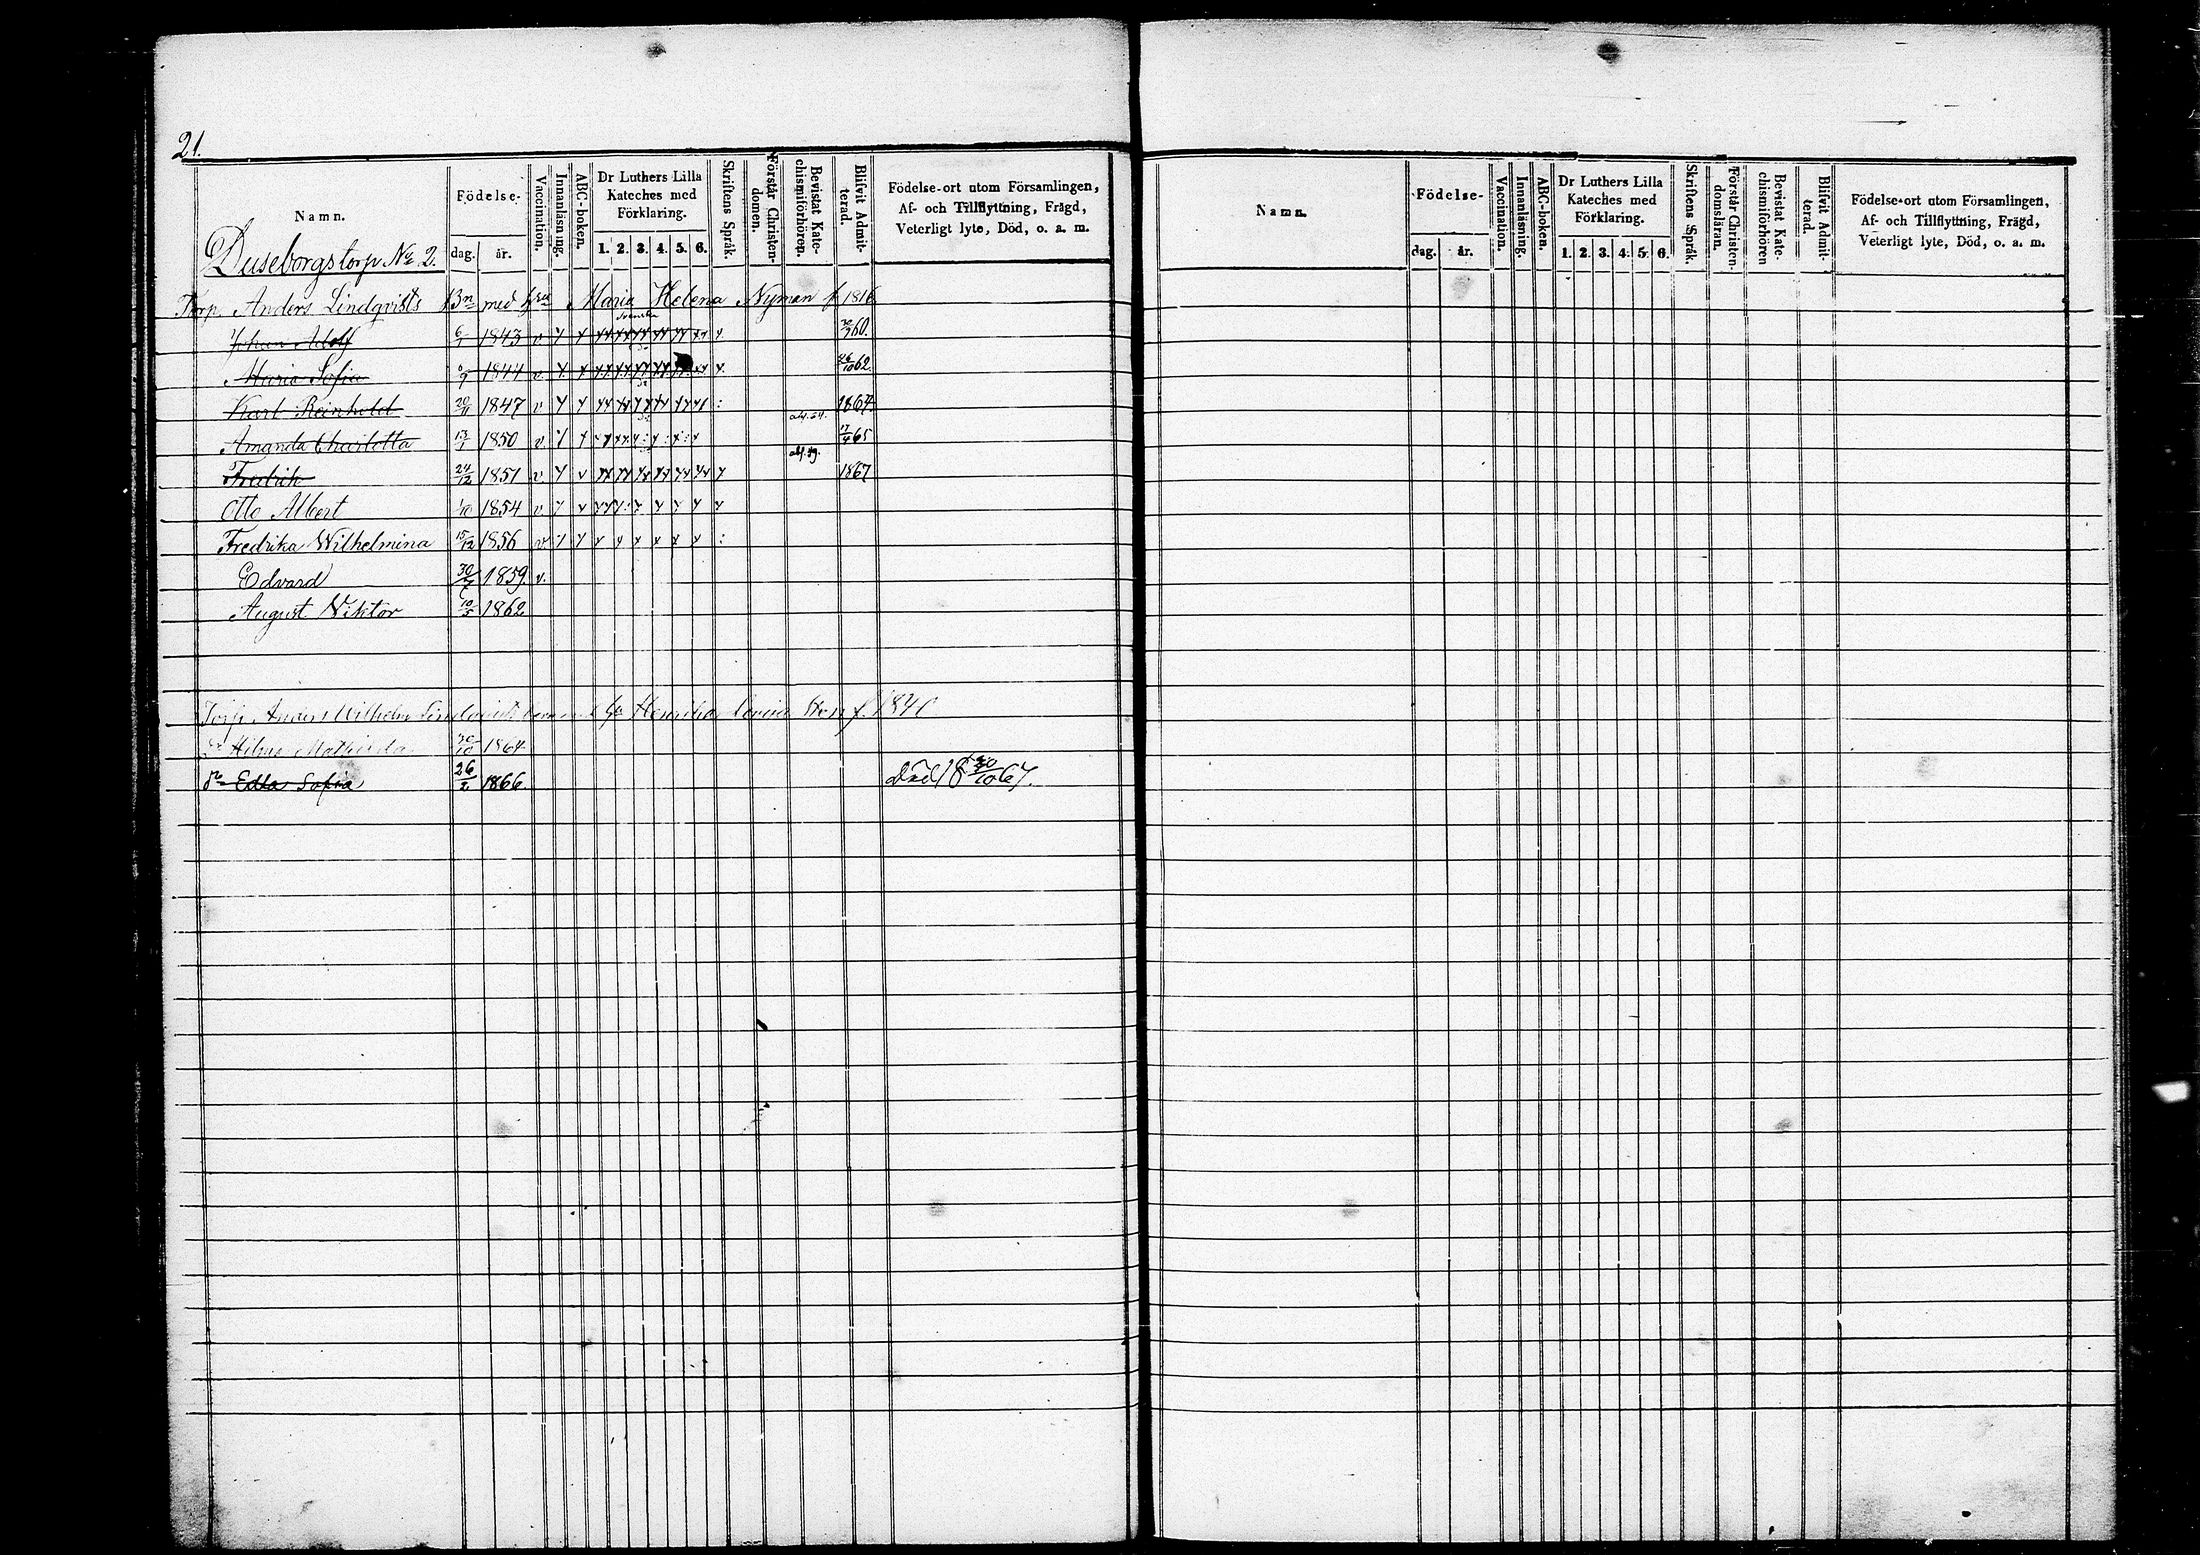 21.
Namn. Födelse- dag. år. Vaccination. Innanläsning. ABC-boken. Dr Luthers Lilla Kateches med Förklaring. 1. 2. 3. 4. 5. 6. Skriftens Språk. Förstår Christendomen. Bevistat Katechismiförhören. Blifvit Admitterad. Födelse-ort utom Församlingen, Af- och Tillflyttning, Frägd, Veterligt lyte, Död, o. a. m.
Duseborgstorp No 2.
Torp. Anders Lindqvists Bn med Maria Helena Nyman f 1816
Johan Adolf 6/1 1843 v 60.
Maria Sofia 1844 v. 26/10 62.
Karl Reinhold 20/11 1847 v 1864.
Amanda Charlotta 13/1 1850 v. 17/4 65
Fredrik 24/12 1851 v. 1867
Otto Albert 1854 v.
Fredrika Wilhelmina 15/12 1856 v.
Edvard 30/7 1859. v.
August Viktor 10/5 1862
Torp. Anders Wilhelm Henrika Lovisa f. 1840
Hilma Mathilda 30/10 1864.
Edla Sofia 26/2 1866. Död 18 30/10 67.
Namn. Födelse- dag. år. Vaccination. Innanläsning. ABC-boken. Dr Luthers Lilla Kateches med Förklaring. 1. 2. 3. 4. 5. 6. Skriftens Språk. Förstår Christendomsläran. Bevistat Katechismiförhören Blifvit Admitterad. Födelse-ort utom Församlingen, Af- och Tillflyttning, Frägd, Veterligt lyte, Död, o. a. m.